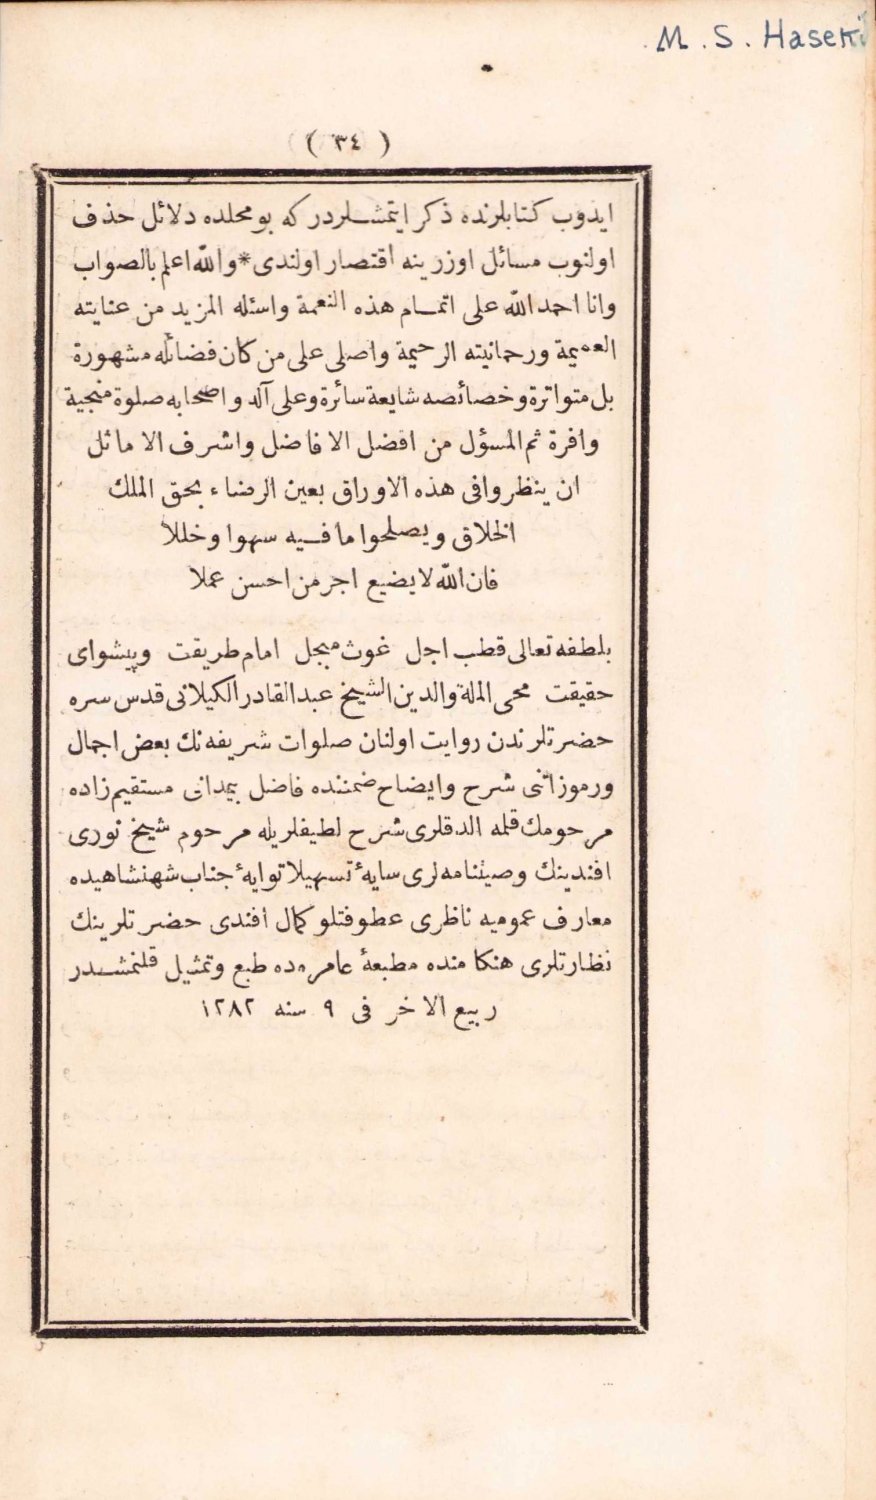 M. S. Haseki
( ٣٤ )
ايدوب كتابلرنده ذكر ايتمشلردر كه بو محلده دلائل حذف
اولنوب مسائل اوزرينه اقتصار اولندى * والله اعلم بالصواب
وانا احمد الله على اتمام هذه النعمة واسئله المزيد من عنايته
العميمة ورحمانيته الرحيمة واصلى على من كان فضائله مشهورة
بل متواترة وخصائصه شايعة سائرة وعلى آله واصحابه صلوة منجية
وافرة ثم المسؤل من افضل الافاضل واشرف الاماثل
ان ينظروا فى هذه الاوراق بعين الرضاء بحق الملك
الخلاق ويصلحوا ما فيه سهوا وخللا
فان الله لا يضيع اجر من احسن عملا
بلطفه تعالى قطب اجل غوث مبجل امام طريقت وپيشواى
حقيقت محى الملة والدين الشيخ عبد القادر الكيلانى قدس سره
حضرتلرندن روايت اولنان صلوات شريفه نك بعض اجمال
ورموزاتنى شرح وايضاح ضمننده فاضل يمدانى مستقيم زاده
مرحومك قلمه الدقلرى شرح لطيفلريله مرحوم شيخ نورى
افندينك وصيتنامه لرى سايهٔ تسهيلاتوايهٔ جناب شهنشاهيده
معارف عموميه ناظرى عطوفتلو كمال افندى حضرتلرينك
نظارتلرى هنكامنده مطبعهٔ عامره ده طبع وتمثيل قلنمشدر
ربيع الاخر فى ٩ سنه ١٢٨٢